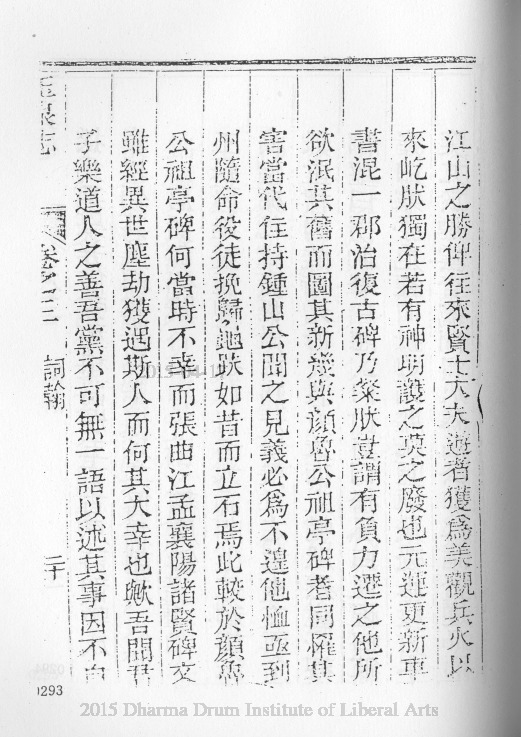 江山之勝俾往來賢士大夫遊者獲為美觀兵火以
來屹肰獨在若有神明護之莫之廢也元運更新車
書混一郡治復古碑乃粲肰豈謂有負力遷之他所
欲泯其舊而圖其新幾與顏魯公祖亭碑者同罹其
害當代住持鍾山公聞之見義必為不遑他恤亟到
州隨命役徒挽歸趺如昔而立石焉此較於顏魯
公祖亭碑何當時不幸而張曲江孟襄陽諸賢碑文
雖經異世塵劫獲遇斯人而何其大幸也歟吾聞君
子樂道人之善吾黨不可無一語以述其事因不
志 卷之二 詞翰 二十
0293
2015 Dharma Drum Institute of Liberal Arts